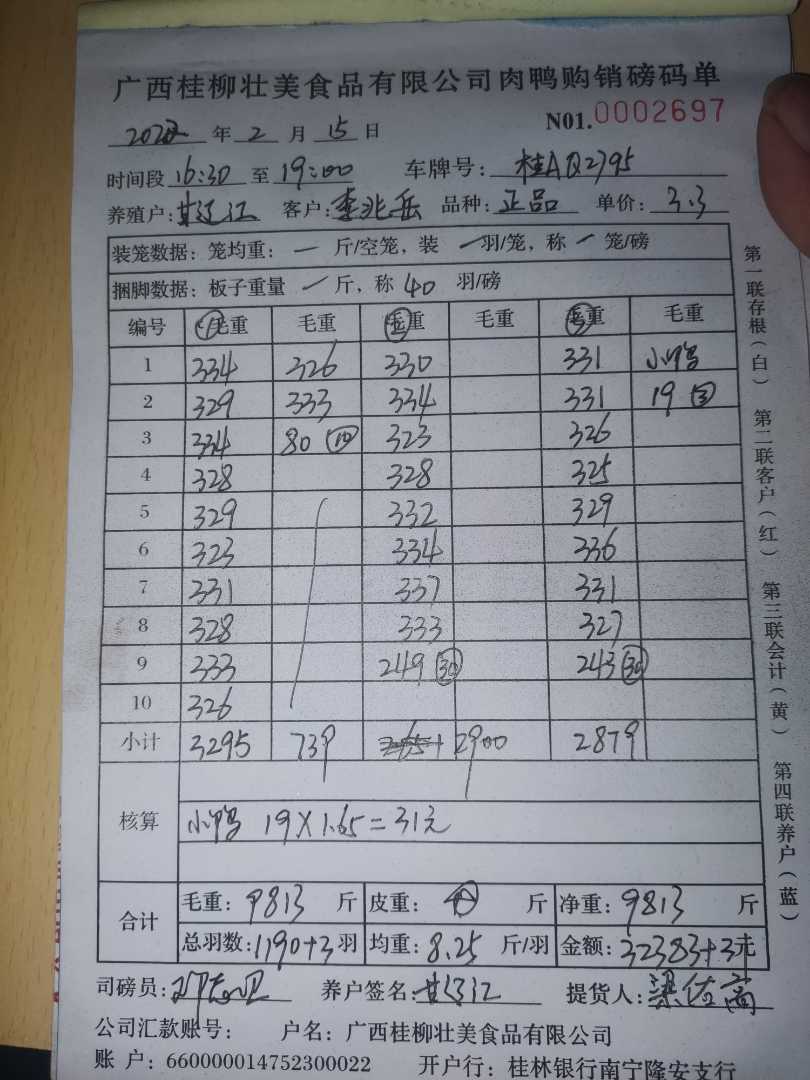 广西桂柳壮美食品有限公司肉鸭购销磅码单
2022 年 2 月 15 日 N01.0002697
时间段 16:30 至 19:00 车牌号: 桂AQ2795
养殖户: 甘辽江 客户: 李兆岳 品种: 正品 单价: 3.3
装笼数据: 笼均重: 一 斤/空笼, 装 一 羽/笼, 称 一 笼/磅
捆脚数据: 板子重量 一 斤, 称 40 羽/磅
编号 毛重 毛重 毛重 毛重 毛重 毛重
1 334 326 330 331 小鸭
2 329 333 334 331 19 ③
3 334 80 ⑩ 323 326
4 328 328 325
5 329 332 329
6 323 334 336
7 331 337 331
8 328 333 327
9 333 249 ㉚ 243 ㉚
10 326
小计 3295 739 2900 2879
核算 小鸭 19×1.65=31元
合计 毛重: 9813 斤 皮重: 斤 净重: 9813 斤
总羽数: 1190+3 羽 均重: 8.25 斤/羽 金额: 32383+3元
司磅员: 养户签名: 甘辽江 提货人: 梁佐高
公司汇款账号: 户名: 广西桂柳壮美食品有限公司
账 户: 660000014752300022 开户行: 桂林银行南宁隆安支行
第一联存根(白) 第二联客户(红) 第三联会计(黄) 第四联养户(蓝)